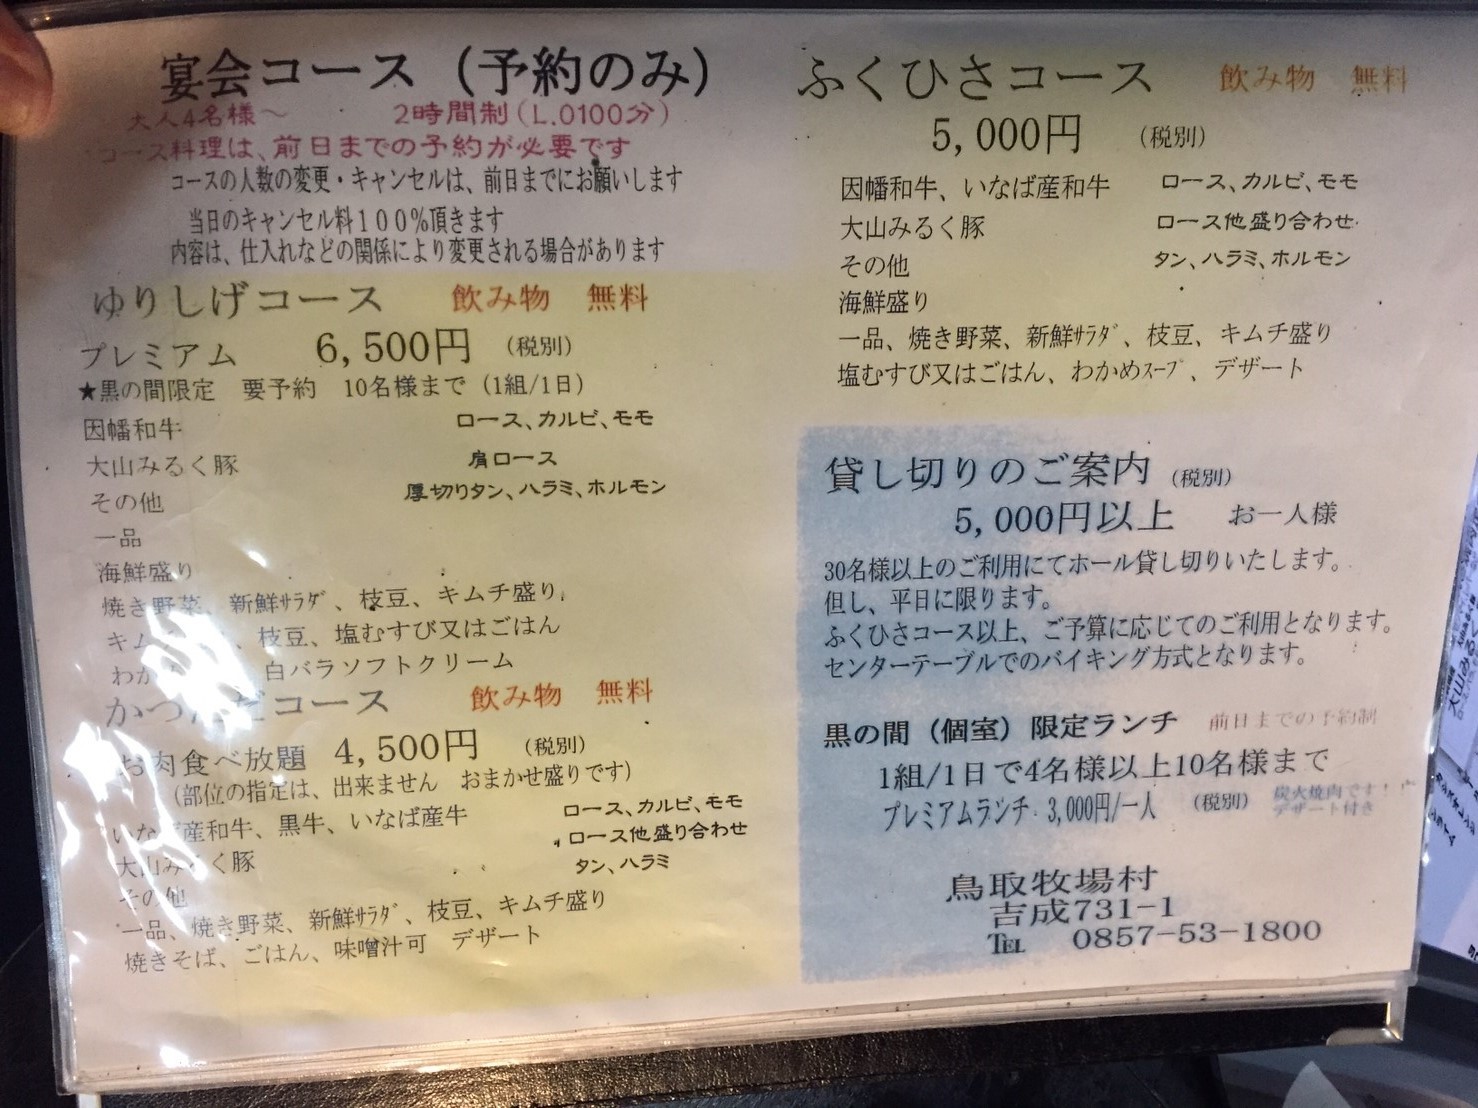 宴会コース（予約のみ）
大人4名様～ 2時間制(L.O100分)
コース料理は、前日までの予約が必要です
コースの人数の変更・キャンセルは、前日までにお願いします
当日のキャンセル料100%頂きます
内容は、仕入れなどの関係により変更される場合があります
ゆりしげコース 飲み物 無料
プレミアム 6,500円 (税別)
★黒の間限定 要予約 10名様まで (1組/1日)
因幡和牛 ロース、カルビ、モモ
大山みるく豚 肩ロース
その他 厚切りタン、ハラミ、ホルモン
一品
海鮮盛り
焼き野菜、新鮮ｻﾗﾀﾞ、枝豆、キムチ盛り、
キム 、枝豆、塩むすび又はごはん
わか 白バラソフトクリーム
かつ コース 飲み物 無料
お肉食べ放題 4,500円 (税別)
(部位の指定は、出来ません おまかせ盛りです)
いなば産和牛、黒牛、いなば産牛 ロース、カルビ、モモ
大山みるく豚 ロース他盛り合わせ
その他 タン、ハラミ
一品、焼き野菜、新鮮ｻﾗﾀﾞ、枝豆、キムチ盛り
焼きそば、ごはん、味噌汁可 デザート
ふくひさコース 飲み物 無料
5,000円 (税別)
因幡和牛、いなば産和牛 ロース、カルビ、モモ
大山みるく豚 ロース他盛り合わせ
その他 タン、ハラミ、ホルモン
海鮮盛り
一品、焼き野菜、新鮮ｻﾗﾀﾞ、枝豆、キムチ盛り
塩むすび又はごはん、わかめｽｰﾌﾟ、デザート
貸し切りのご案内 (税別)
5,000円以上 お一人様
30名様以上のご利用にてホール貸し切りいたします。
但し、平日に限ります。
ふくひさコース以上、ご予算に応じてのご利用となります。
センターテーブルでのバイキング方式となります。
黒の間（個室）限定ランチ 前日までの予約制
1組/1日で4名様以上10名様まで
プレミアムランチ 3,000円/一人 (税別) 炭火焼肉です！
デザート付き
鳥取牧場村
吉成731-1
TEL 0857-53-1800